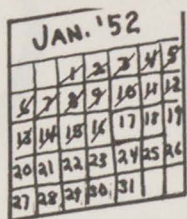 JAN. '52
1 2 3 4 5
6 7 8 9 10 11 12
13 14 15 16 17 18 19
20 21 22 23 24 25 26
27 28 29 30 31